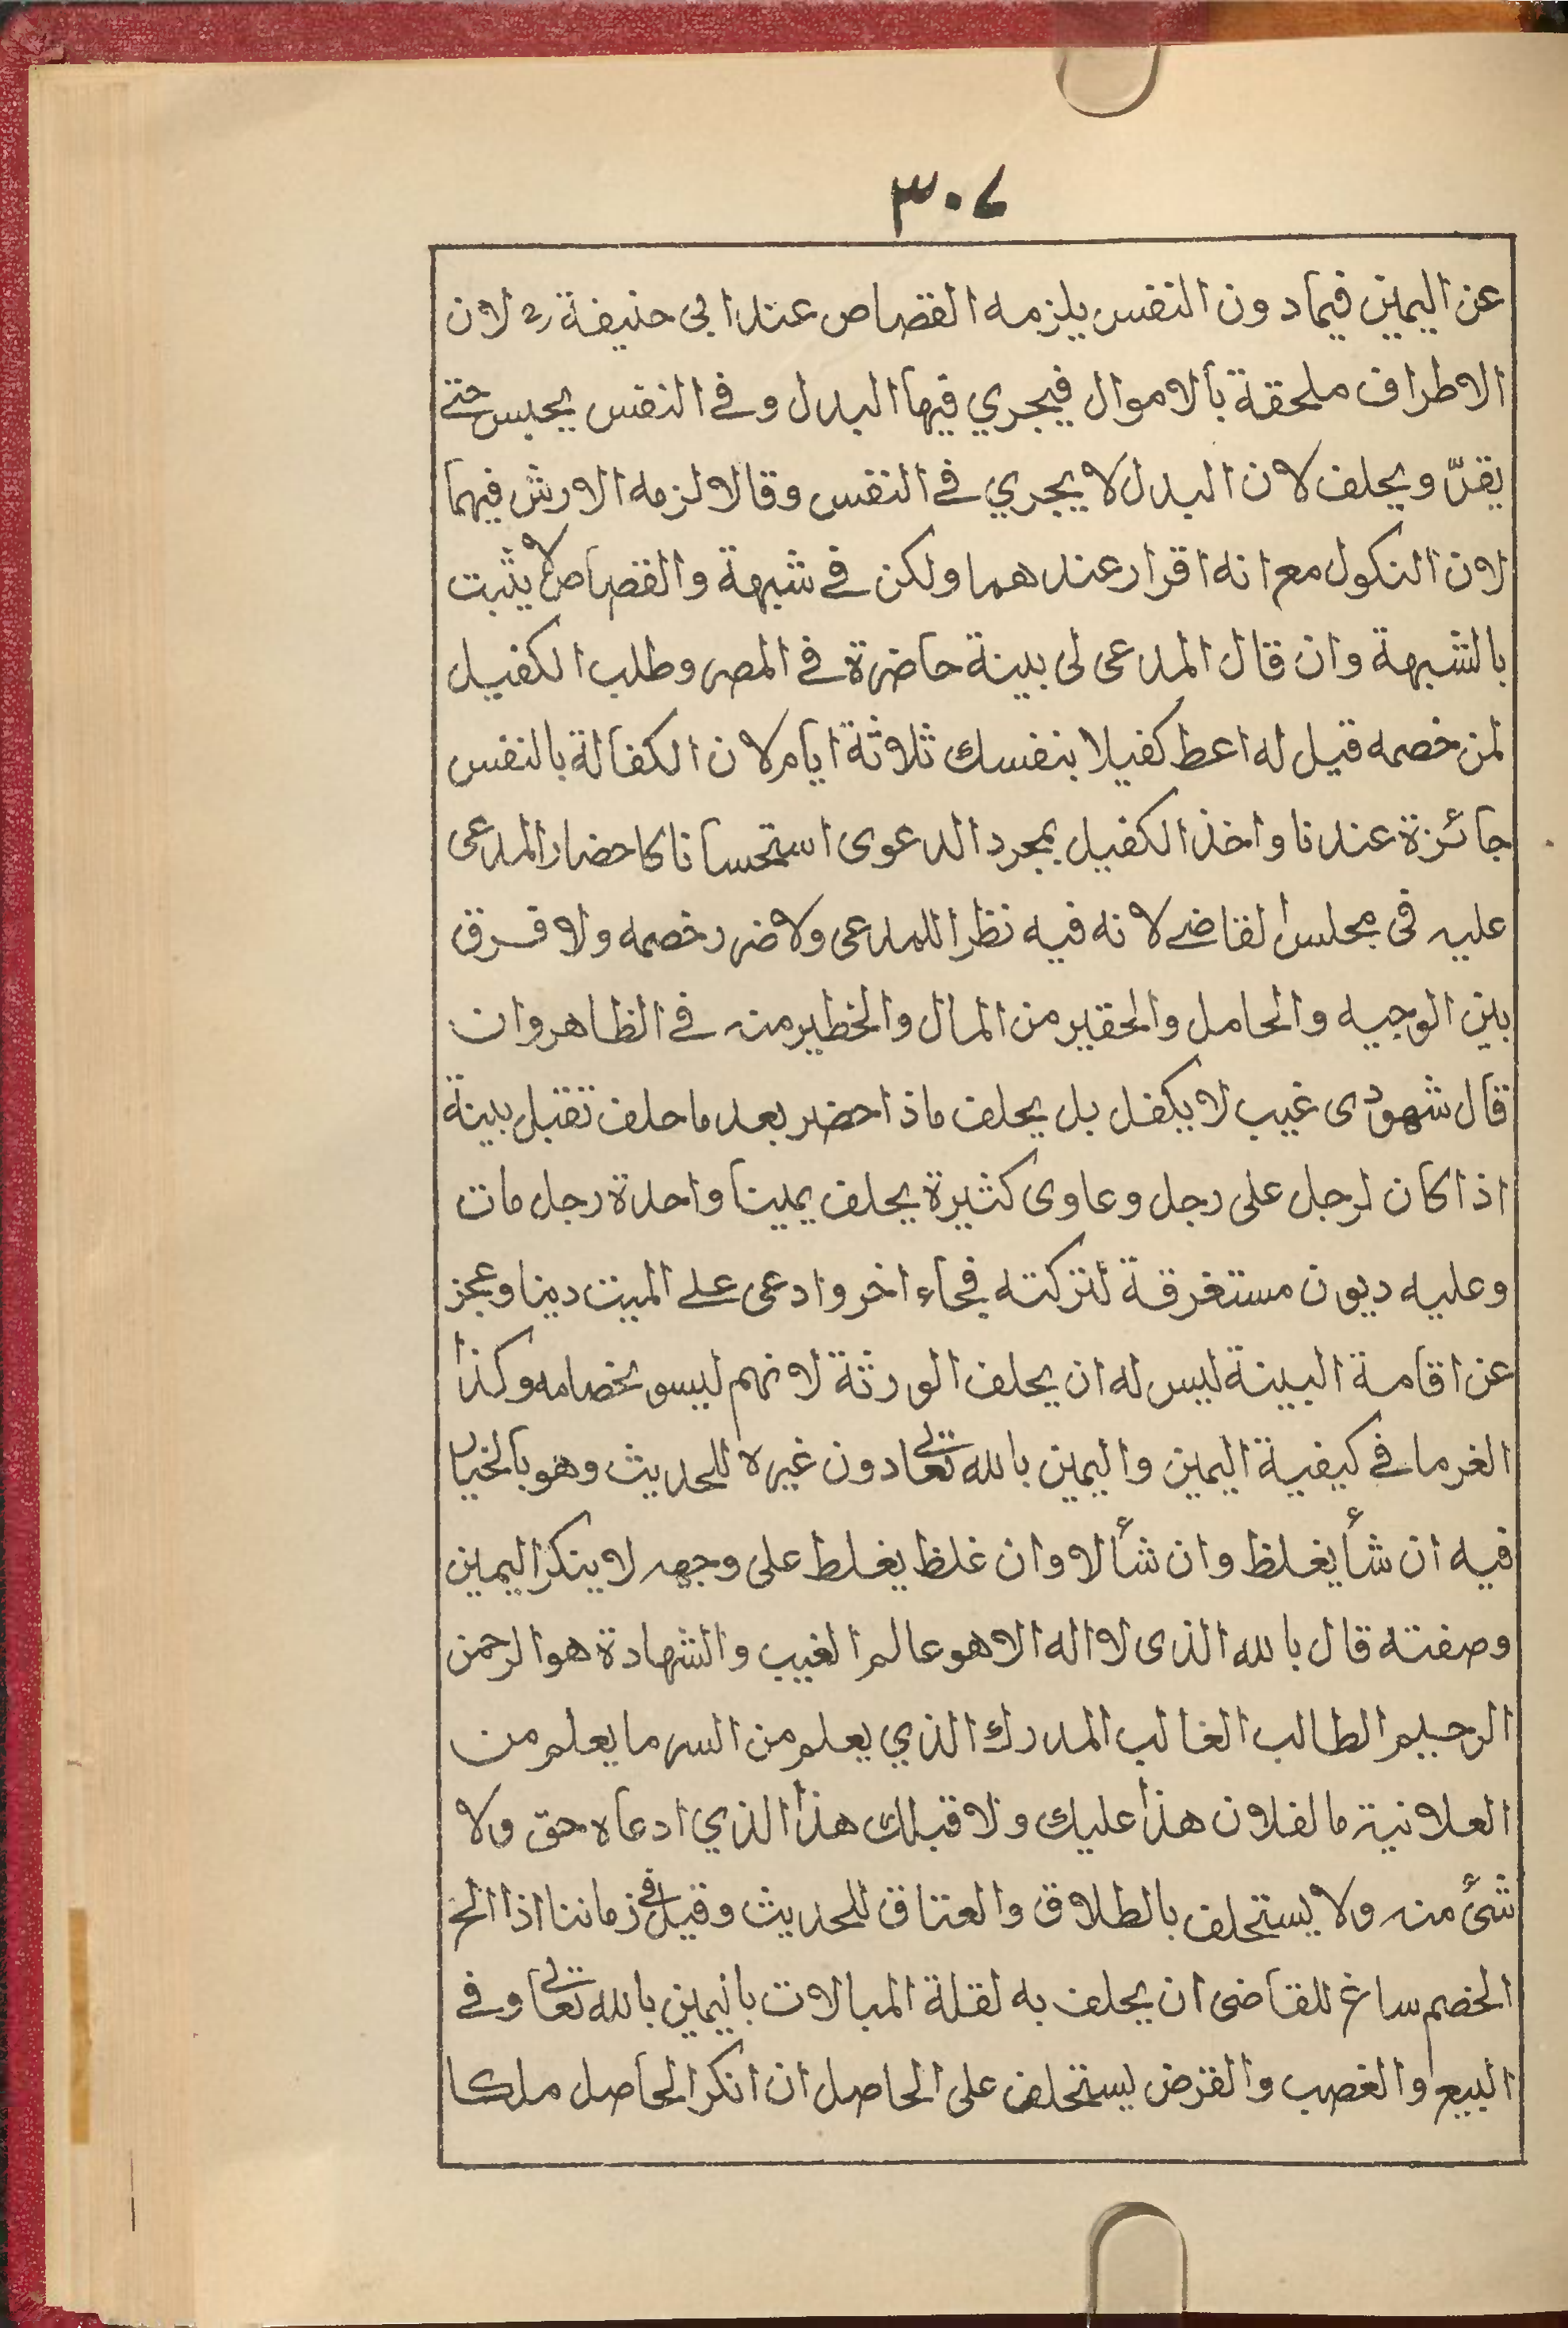 ٣٠٤
عن اليمين فيما دون النفس يلزمه القصاص عند ابى حنيفة رح لان
الاطراف ملحقة بالاموال فيجري فيها البدل وفى النفس يحبس حتى
يقرّ ويحلف لان البدل لا يجري فى النفس وقالا لزمه الارش فيهما
لان النكول مع انه اقرار عندهما ولكن فى شبهة والقصاص لا يثبت
بالشبهة وان قال المدعى لى بينة حاضرة فى المصر وطلب الكفيل
لمن خصمه قيل له اعط كفيلا بنفسك ثلاثة ايام لان الكفالة بالنفس
جائزة عندنا واخذ الكفيل بمجرد الدعوى استحسانا كاحضار المدعى
عليه فى مجلس القاضى لانه فيه نظرا للمدعى ولا ضرر خصمه ولا فرق
بين الوجيه والحامل والحقير من المال والخطير منه فى الظاهر وان
قال شهودى غيب لا يكفل بل يحلف ماذا حضر بعد ما حلف تقبل بينة
اذا كان لرجل على رجل وعاوى كثيرة يحلف يمينا واحدة رجل مات
وعليه ديون مستغرقة لتركته فجاء اخر وادعى على الميت دينا وعجز
عن اقامة البينة ليس له ان يحلف الورثة لانهم ليسو بخصامه وكذا
الغرما فى كيفية اليمين واليمين بالله تعالى دون غيره للحديث وهو بالخيار
فيه ان شأء يغلظ وان شأء لا وان غلظ يغلط على وجهه لا ينكر اليمين
وصفته قال بالله الذى لا اله الا هو عالم الغيب والشهادة هو الرحمن
الرحيم الطالب الغالب المدرك الذي يعلم من السر ما يعلم من
العلانية ما لفلان هذا عليك ولا قبلك هذا الذي ادعاه حق ولا
شئ منه ولا يستحلف بالطلاق والعتاق للحديث وقيل فى زماننا اذا الح
الخصم ساغ للقاضى ان يحلف به لقلة المبالات باليمين بالله تعالى وفى
البيع والغصب والقرض يستحلف على الحاصل ان انكر الحاصل ملكا